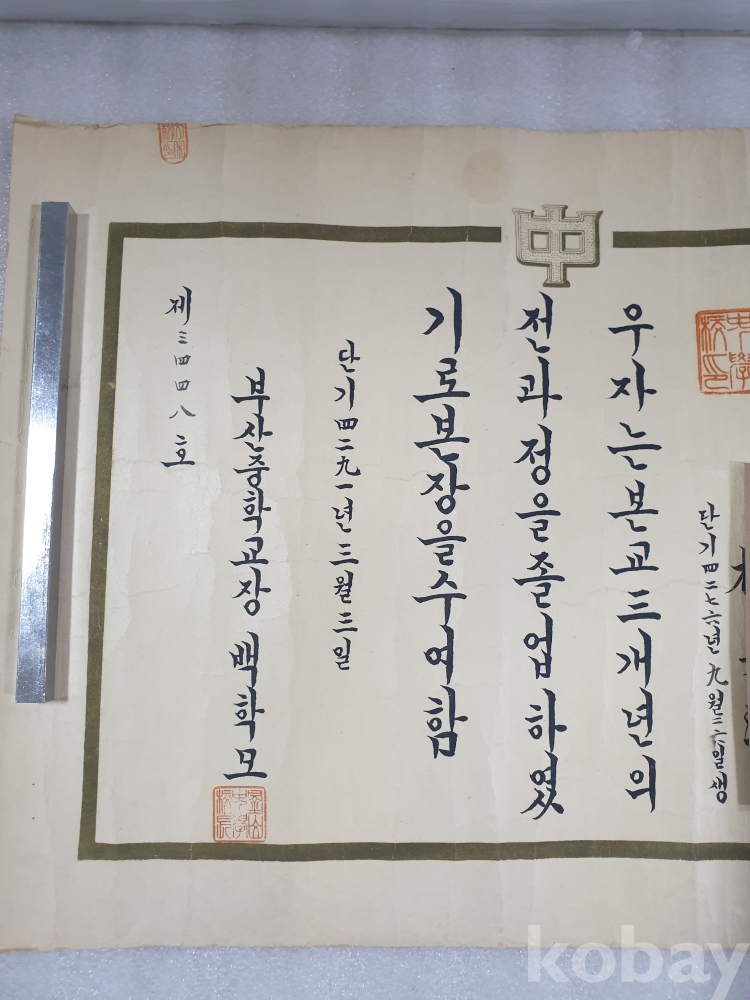 中
단기四二七六년 九월 二六일생
우자는본교三개년의
전과정을졸업하였
기로본장을수여함
단기四二九一년 三월 三일
부산중학교장 백학모
제三四四八호
kobay